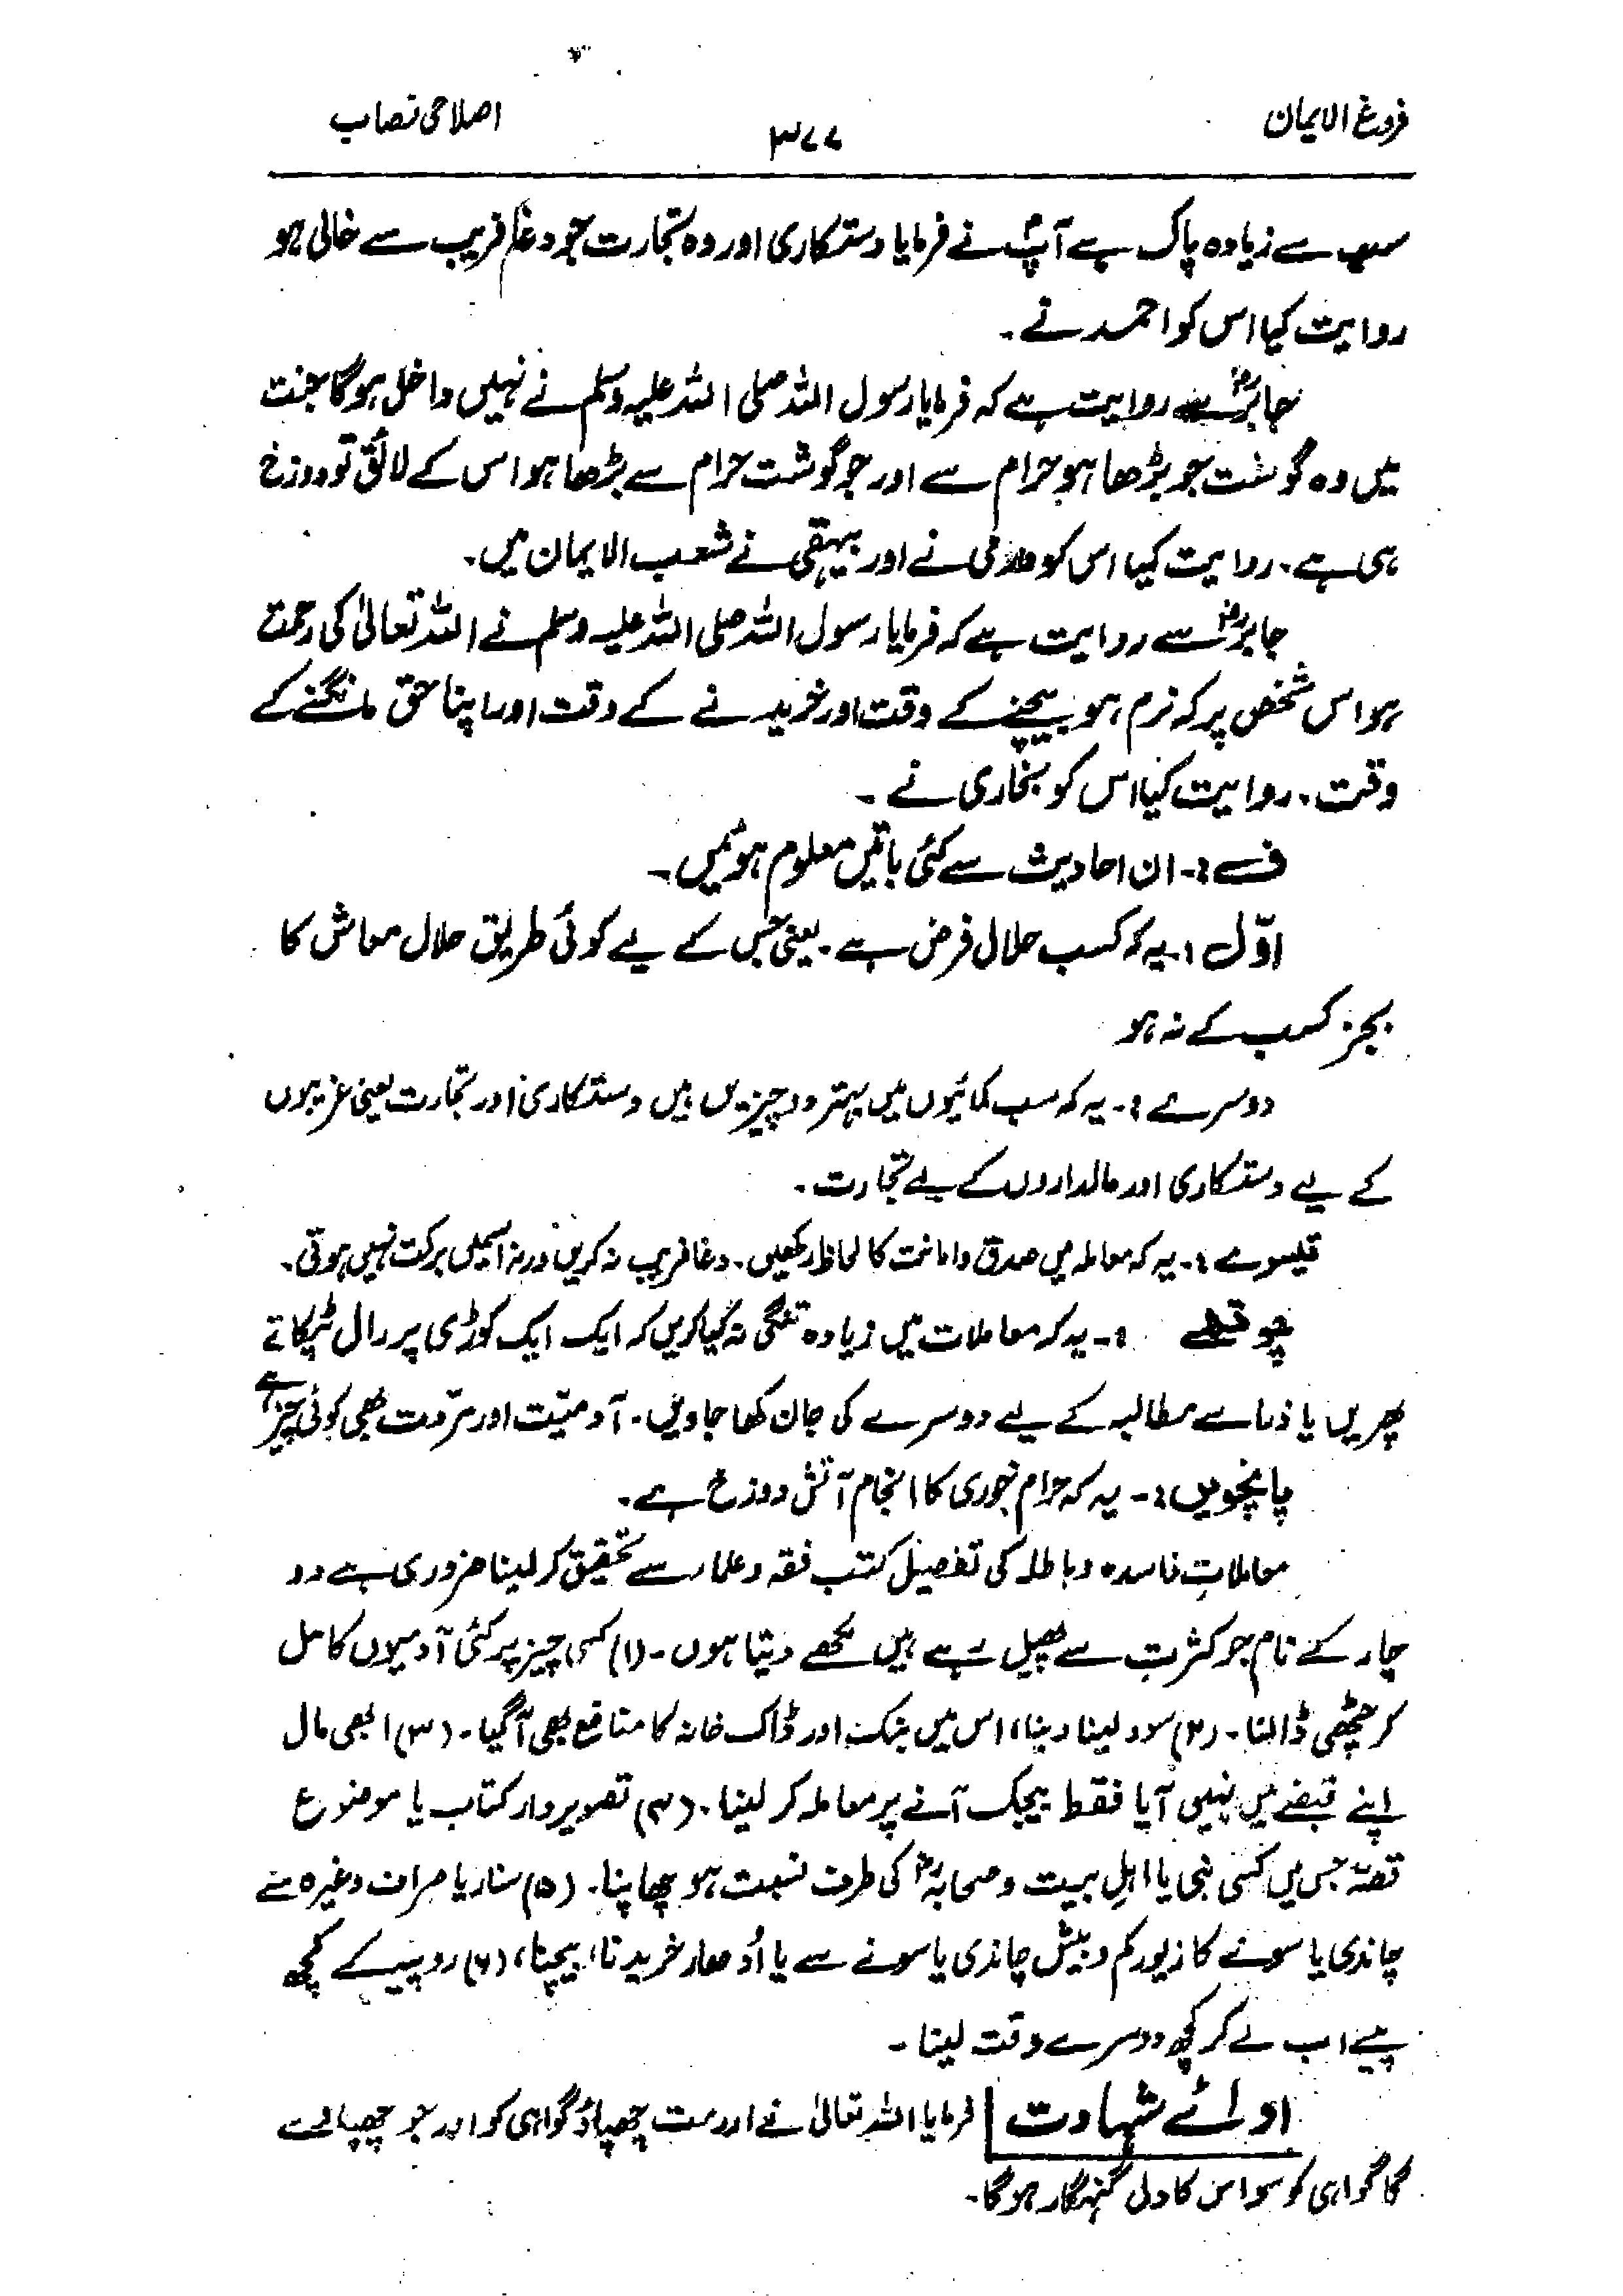 فروغ الایمان
۳۷۷
اصلاحی نصاب
سب سے زیادہ پاک ہے آپؐ نے فرمایا دستکاری اور وہ تجارت جو دغا فریب سے خالی ہو
روایت کیا اس کو احمد نے۔
جابرؓ سے روایت ہے کہ فرمایا رسول اللہ صلی اللہ علیہ وسلم نے نہیں داخل ہوگا جنت
میں وہ گوشت جو بڑھا ہو حرام سے اور جو گوشت حرام سے بڑھا ہو اس کے لائق تو دوزخ
ہی ہے۔ روایت کیا اس کو دارمی نے اور بیہقی نے شعب الایمان میں۔
جابرؓ سے روایت ہے کہ فرمایا رسول اللہ صلی اللہ علیہ وسلم نے اللہ تعالیٰ کی رحمت
ہو اس شخص پر کہ نرم ہو بیچنے کے وقت اور خریدنے کے وقت اور اپنا حق مانگنے کے
وقت۔ روایت کیا اس کو بخاری نے۔
ف:۔ ان احادیث سے کئی باتیں معلوم ہوئیں۔
اوّل :۔ یہ کہ کسب حلال فرض ہے۔ یعنی جس کے لیے کوئی طریق حلال معاش کا
بجز کسب کے نہ ہو
دوسرے :۔ یہ کہ سب کمائیوں میں بہتر دو چیزیں ہیں دستکاری اور تجارت یعنی غریبوں
کے لیے دستکاری اور مالداروں کے لیے تجارت۔
تیسرے :۔ یہ کہ معاملہ میں صدق و امانت کا لحاظ رکھیں۔ دغا فریب نہ کریں ورنہ اسمیں برکت نہیں ہوتی۔
چوتھے :۔ یہ کہ معاملات میں زیادہ تنگی نہ کیا کریں کہ ایک ایک کوڑی پر رال ٹپکاتے
پھریں یا ذرا سے مطالبہ کے لیے دوسرے کی جان کھا جاویں۔ آدمیّت اور مروّت بھی کوئی چیز ہے
پانچویں:۔ یہ کہ حرام خوری کا انجام آتش دوزخ ہے۔
معاملاتِ فاسدہ و باطلہ کی تفصیل کتب فقہ و علماء سے تحقیق کر لینا ضروری ہے دو
چار کے نام جو کثرت سے پھیل رہے ہیں لکھے دیتا ہوں۔ (۱) کسی چیز پر کئی آدمیوں کا مل
کر چٹھی ڈالنا۔ (۲) سود لینا دینا، اس میں بنک اور ڈاک خانہ کا منافع بھی آگیا۔ (۳) ابھی مال
اپنے قبضے میں نہیں آیا فقط بیچک آنے پر معاملہ کر لینا۔ (۴) تصویر دار کتاب یا موضوع
قصّہ جس میں کسی نبی یا اہلِ بیت و صحابہؓ کی طرف نسبت ہو چھاپنا۔ (۵) سنار یا صراف وغیرہ سے
چاندی یا سونے کا زیور کم و بیش چاندی یا سونے سے یا اُدھار خریدنا، بیچنا، (۶) روپیے کے کچھ
پیسے اب لے کر کچھ دوسرے وقت لینا۔
ادائے شہادت فرمایا اللہ تعالیٰ نے اور مت چھپاؤ گواہی کو اور جو چھپالے
گا گواہی کو سو اس کا دل گنہگار ہوگا۔